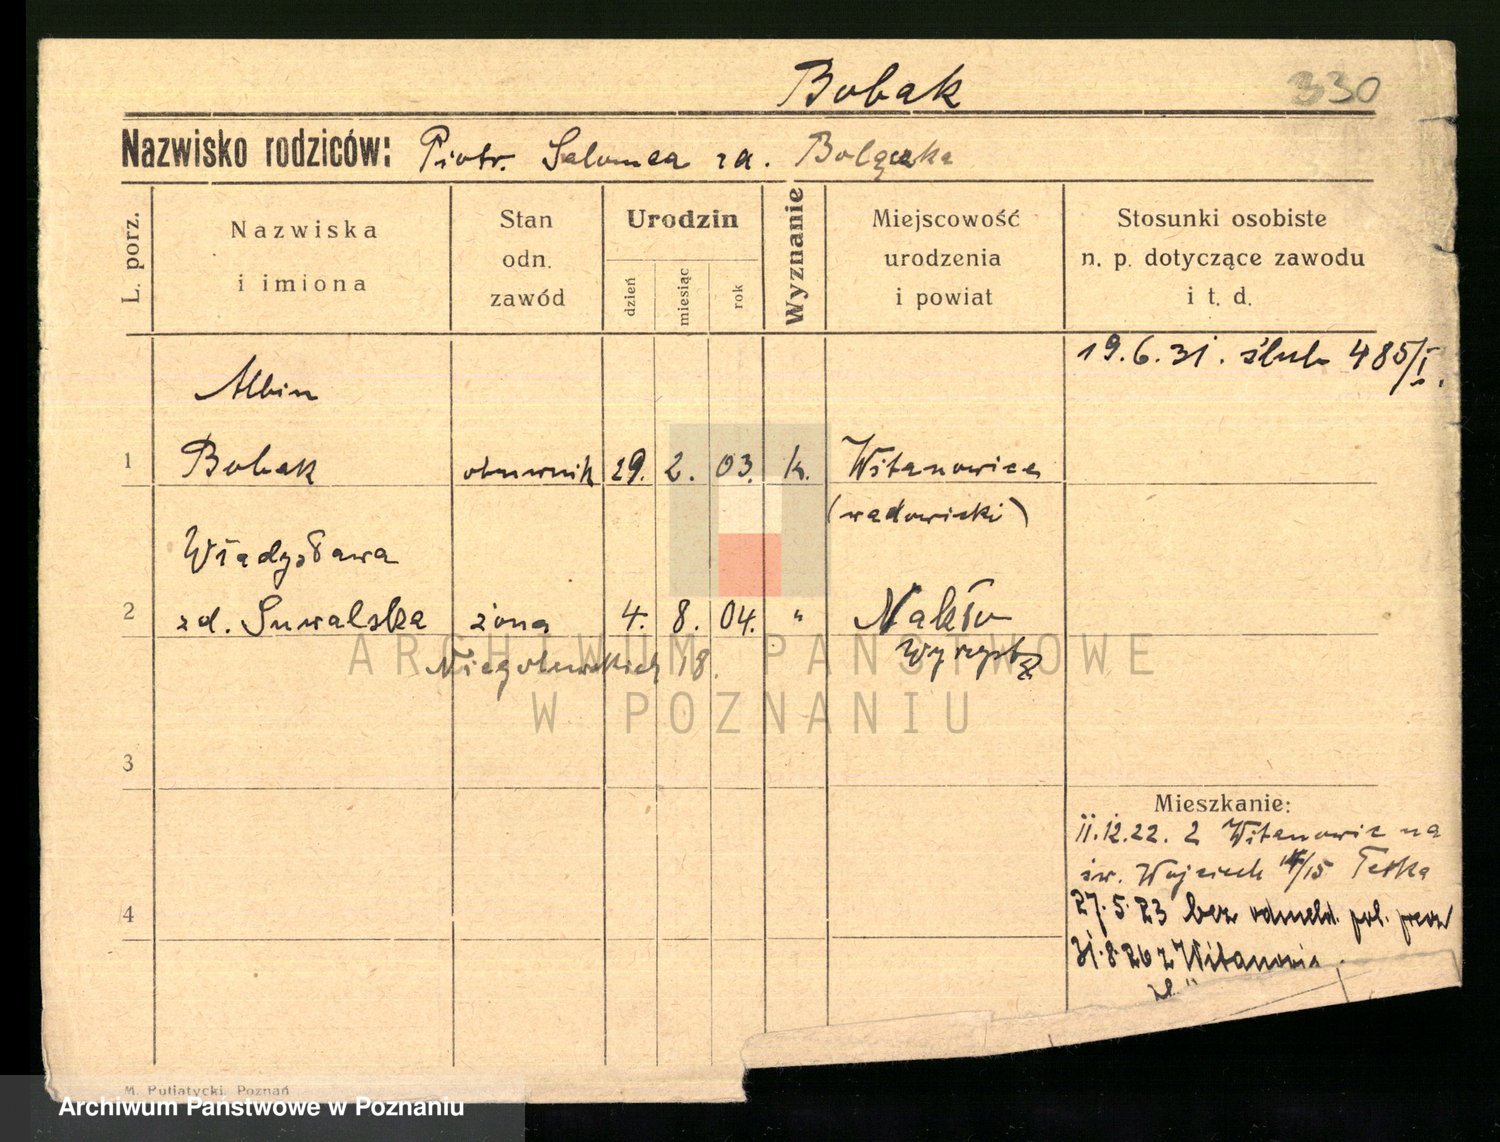 Bobak
330
Nazwisko rodziców: Piotr. Salomea zd.
L. porz.
Nazwiska i imiona
Stan odn. zawód
Urodzin
dzień
miesiąc
rok
Wyznanie
Miejscowość urodzenia i powiat
Stosunki osobiste n. p. dotyczące zawodu i t. d.
19.6.31. ślub 485/I.
Albin
1 Bobak obuwnik 29. 2. 03. k. Witanowice
(wadowicki)
Władysława
2 zd. Suwalska żona 4. 8. 04. " Nakło
Niegolewskich 18. Wyrzysk
ARCHIWUM PAŃSTWOWE
W POZNANIU
3
Mieszkanie:
11.12.22. z Witanowic na
św. Wojciech /15
4
27.5.23 bez odmeld. pol.
31.8.26 z Witanowic.
M. Putiatycki, Poznań
Archiwum Państwowe w Poznaniu